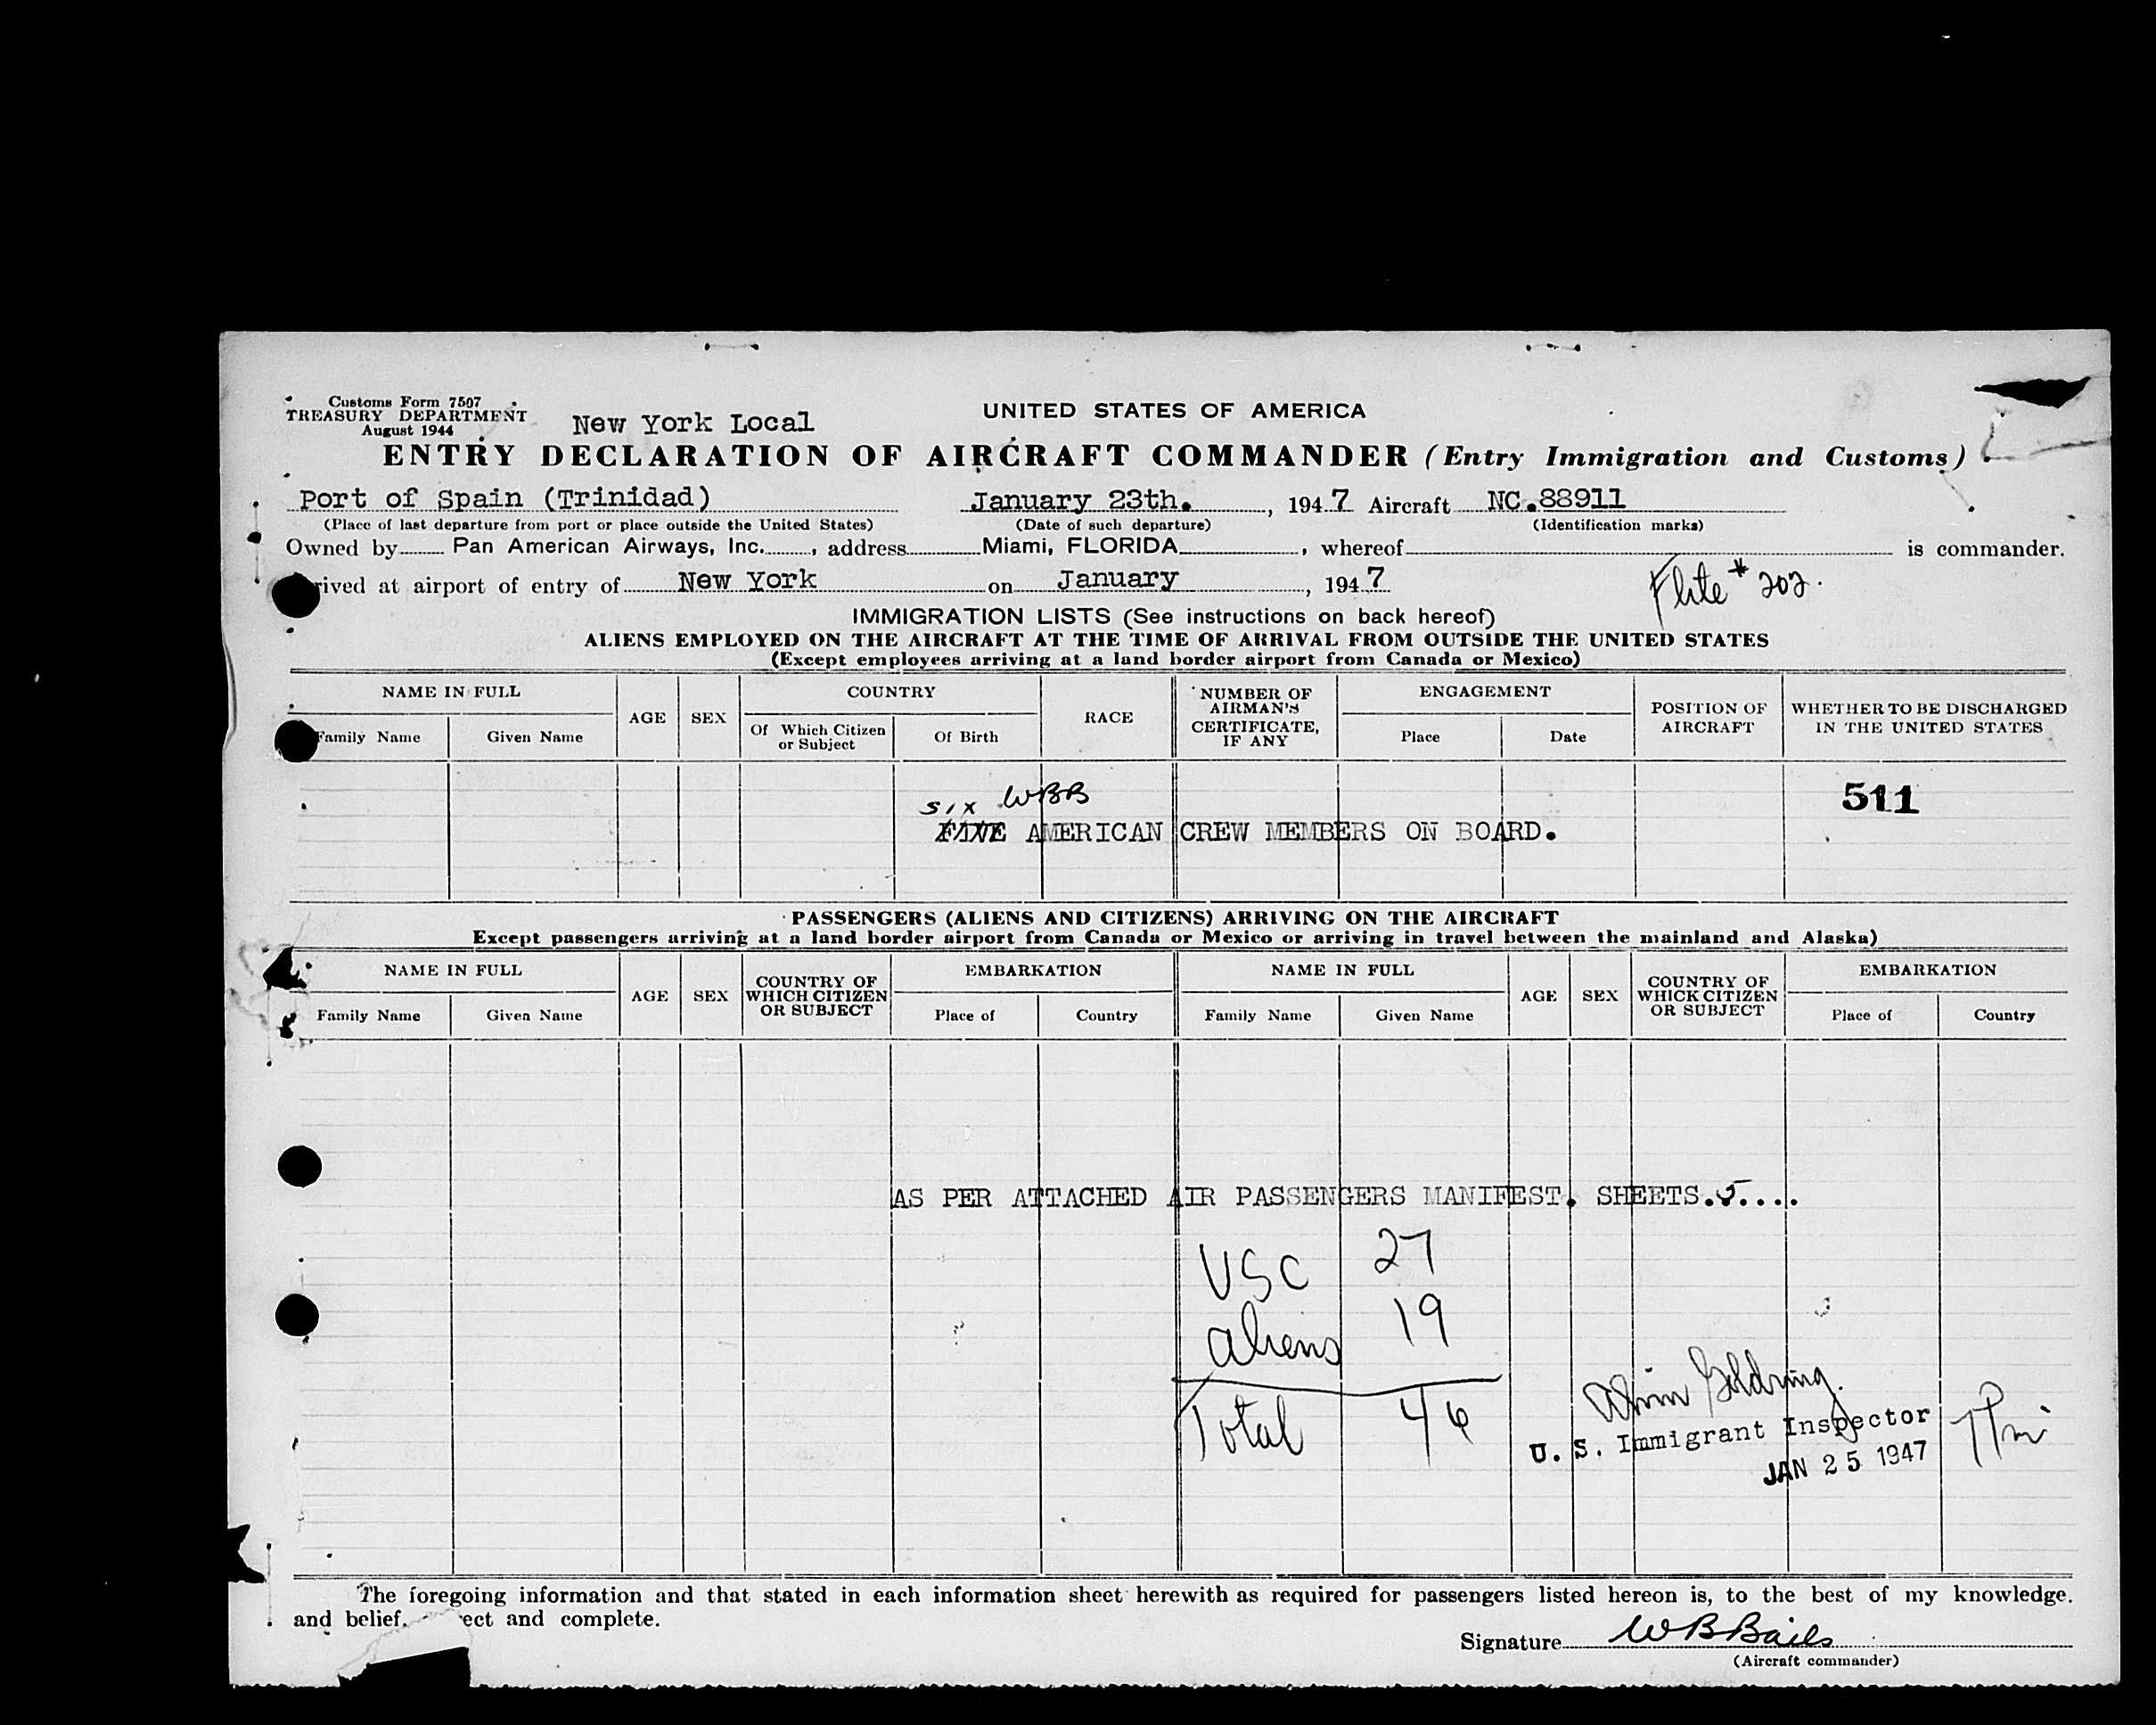 Customs Form 7507
TREASURY DEPARTMENT
August 1944
New York Local
UNITED STATES OF AMERICA
ENTRY DECLARATION OF AIRCRAFT COMMANDER (Entry Immigration and Customs)
Port of Spain (Trinidad) January 23th., 1947 Aircraft NC.88911
(Place of last departure from port or place outside the United States) (Date of such departure) (Identification marks)
Owned by Pan American Airways, Inc., address Miami, FLORIDA, whereof is commander.
rived at airport of entry of New York on January, 1947
Flite # 202.
IMMIGRATION LISTS (See instructions on back hereof)
ALIENS EMPLOYED ON THE AIRCRAFT AT THE TIME OF ARRIVAL FROM OUTSIDE THE UNITED STATES
(Except employees arriving at a land border airport from Canada or Mexico)
NAME IN FULL
Family Name Given Name
AGE
SEX
COUNTRY
Of Which Citizen or Subject
Of Birth
RACE
NUMBER OF AIRMAN'S CERTIFICATE, IF ANY
ENGAGEMENT
Place Date
POSITION OF AIRCRAFT
WHETHER TO BE DISCHARGED IN THE UNITED STATES
511
six WBB
FIVE AMERICAN CREW MEMBERS ON BOARD.
PASSENGERS (ALIENS AND CITIZENS) ARRIVING ON THE AIRCRAFT
Except passengers arriving at a land border airport from Canada or Mexico or arriving in travel between the mainland and Alaska)
NAME IN FULL
Family Name Given Name
AGE
SEX
COUNTRY OF WHICH CITIZEN OR SUBJECT
EMBARKATION
Place of Country
NAME IN FULL
Family Name Given Name
AGE
SEX
COUNTRY OF WHICK CITIZEN OR SUBJECT
EMBARKATION
Place of Country
AS PER ATTACHED AIR PASSENGERS MANIFEST. SHEETS.5....
USC 27
aliens 19
Total 46
Goldring
U. S. Immigrant Inspector
JAN 25 1947
The foregoing information and that stated in each information sheet herewith as required for passengers listed hereon is, to the best of my knowledge.
and belief, ect and complete.
Signature WBBails
(Aircraft commander)